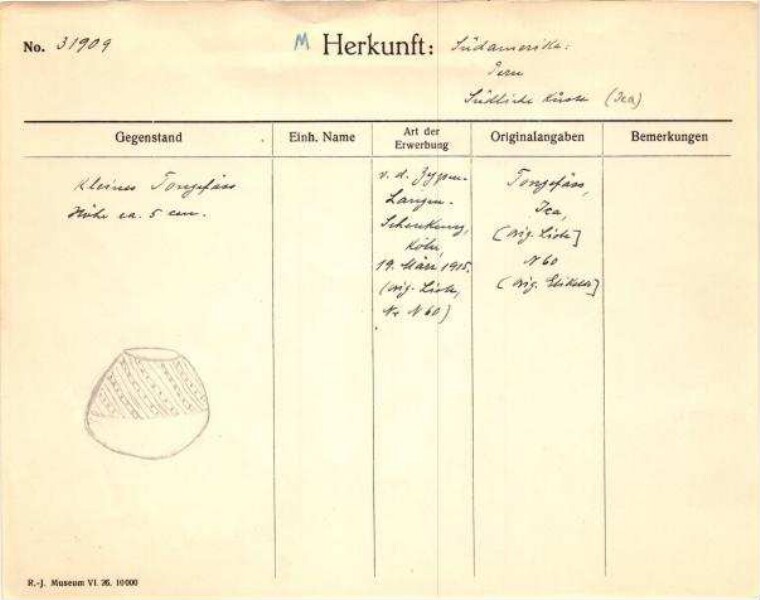 No. 31909
M Herkunft: Südamerika:
Peru
Südliche Küste (Ica)
Gegenstand
Einh. Name
Art der
Erwerbung
Originalangaben
Bemerkungen
kleines Tongefäss
Höhe ca. 5 cm.
v. d. Zypen-
Langen-
Schenkung,
Köln,
19. März 1915.
(orig. Liste,
Nr N60)
Tongefäss,
Ica,
(orig. Liste]
N60
(orig. Etikett]
R.-J. Museum VI. 26. 10000